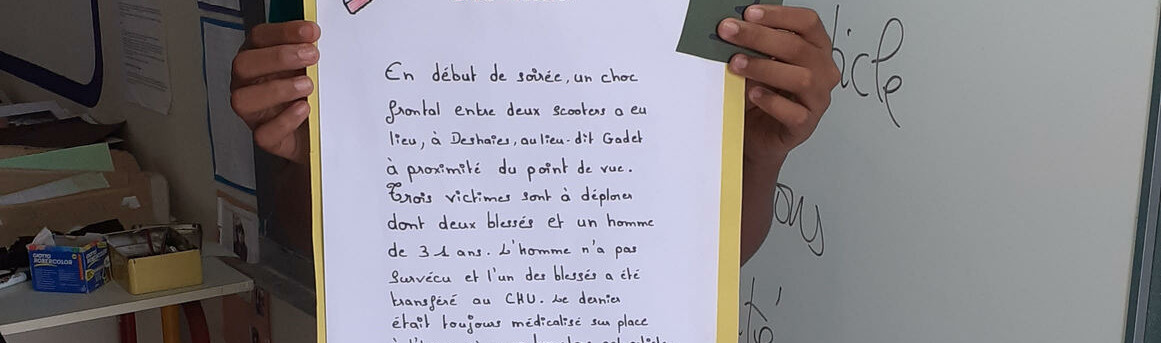 En début de soirée, un choc
frontal entre deux scooters a eu
lieu, à Deshaies, au lieu-dit Gadet
à proximité du point de vue.
Trois victimes sont à déplorer
dont deux blessés et un homme
de 31 ans. L'homme n'a pas
survécu et l'un des blessés a été
transféré au CHU. Le dernier
était toujours médicalisé sur place
icle
ons
té
GIOTTO